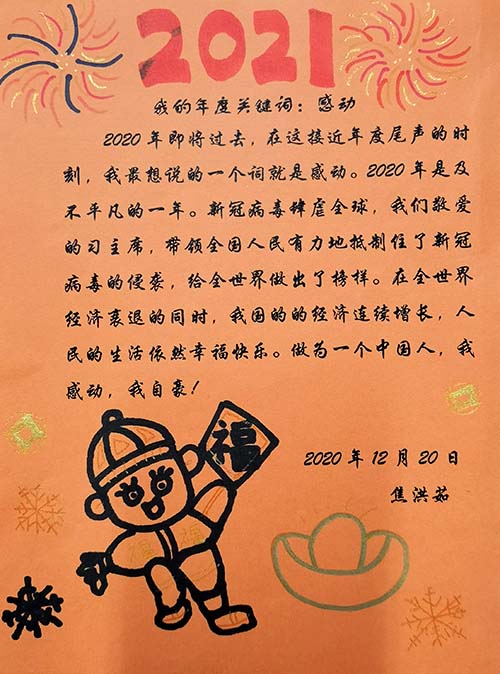 2021
我的年度关键词：感动
2020年即将过去，在这接近年度尾声的时
刻，我最想说的一个词就是感动。2020年是及
不平凡的一年。新冠病毒肆虐全球，我们敬爱
的习主席，带领全国人民有力地抵制住了新冠
病毒的侵袭，给全世界做出了榜样。在全世界
经济衰退的同时，我国的的经济连续增长，人
民的生活依然幸福快乐。做为一个中国人，我
感动，我自豪！
福
福 福
2020年12月20日
焦洪茹